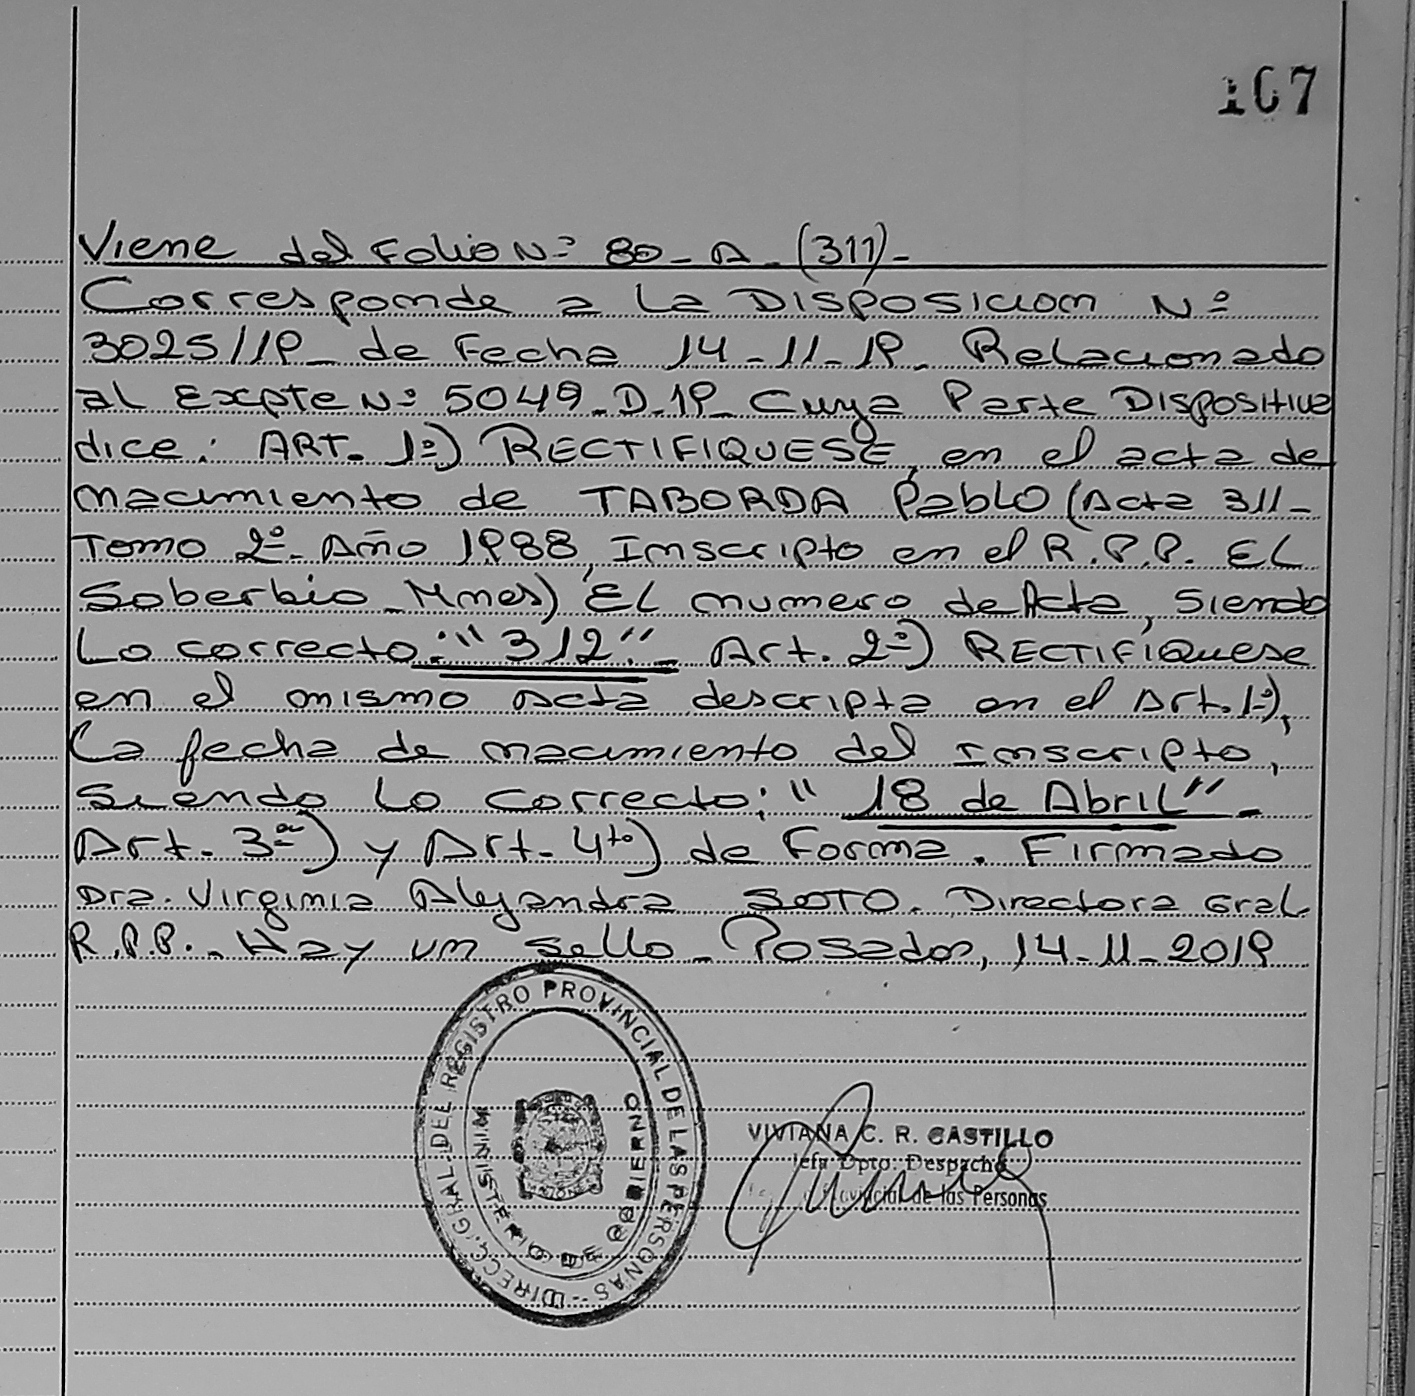 167
Viene del Folio Nº 80_A_(311)-
Corresponde a La DISPOSICION Nº
3025/19_ de Fecha 14-11-19_ Relacionado
al Expte Nº 5049_D_19_ Cuya Parte DISPOSITIVA
dice: ART. 1º) RECTIFIQUESE, en el acta de
nacimiento de TABORDA Pablo (Acta 311-
Tomo 2º- Año 1988, Inscripto en el R.P.P. EL
Soberbio_Mnes) EL numero de Acta, Siendo
Lo correcto: "312"_ Art. 2º) RECTIFIQUESE
en el mismo acta descripta en el Art. 1º),
La fecha de nacimiento del Inscripto,
Siendo Lo Correcto: "18 de Abril"_
Art. 3º) y Art. 4to) de Forma. Firmado
Dra. Virginia Alejandra SOTO. Directora Gral.
R.P.P._ Hay un sello_ Posadas, 14-11-2019
DIRECC. GRAL. DEL REGISTRO PROVINCIAL DE LAS PERSONAS
MINISTERIO DE GOBIERNO
MISIONES
VIVIANA C. R. CASTILLO
Jefa Dpto. Despacho
Provincial de las Personas